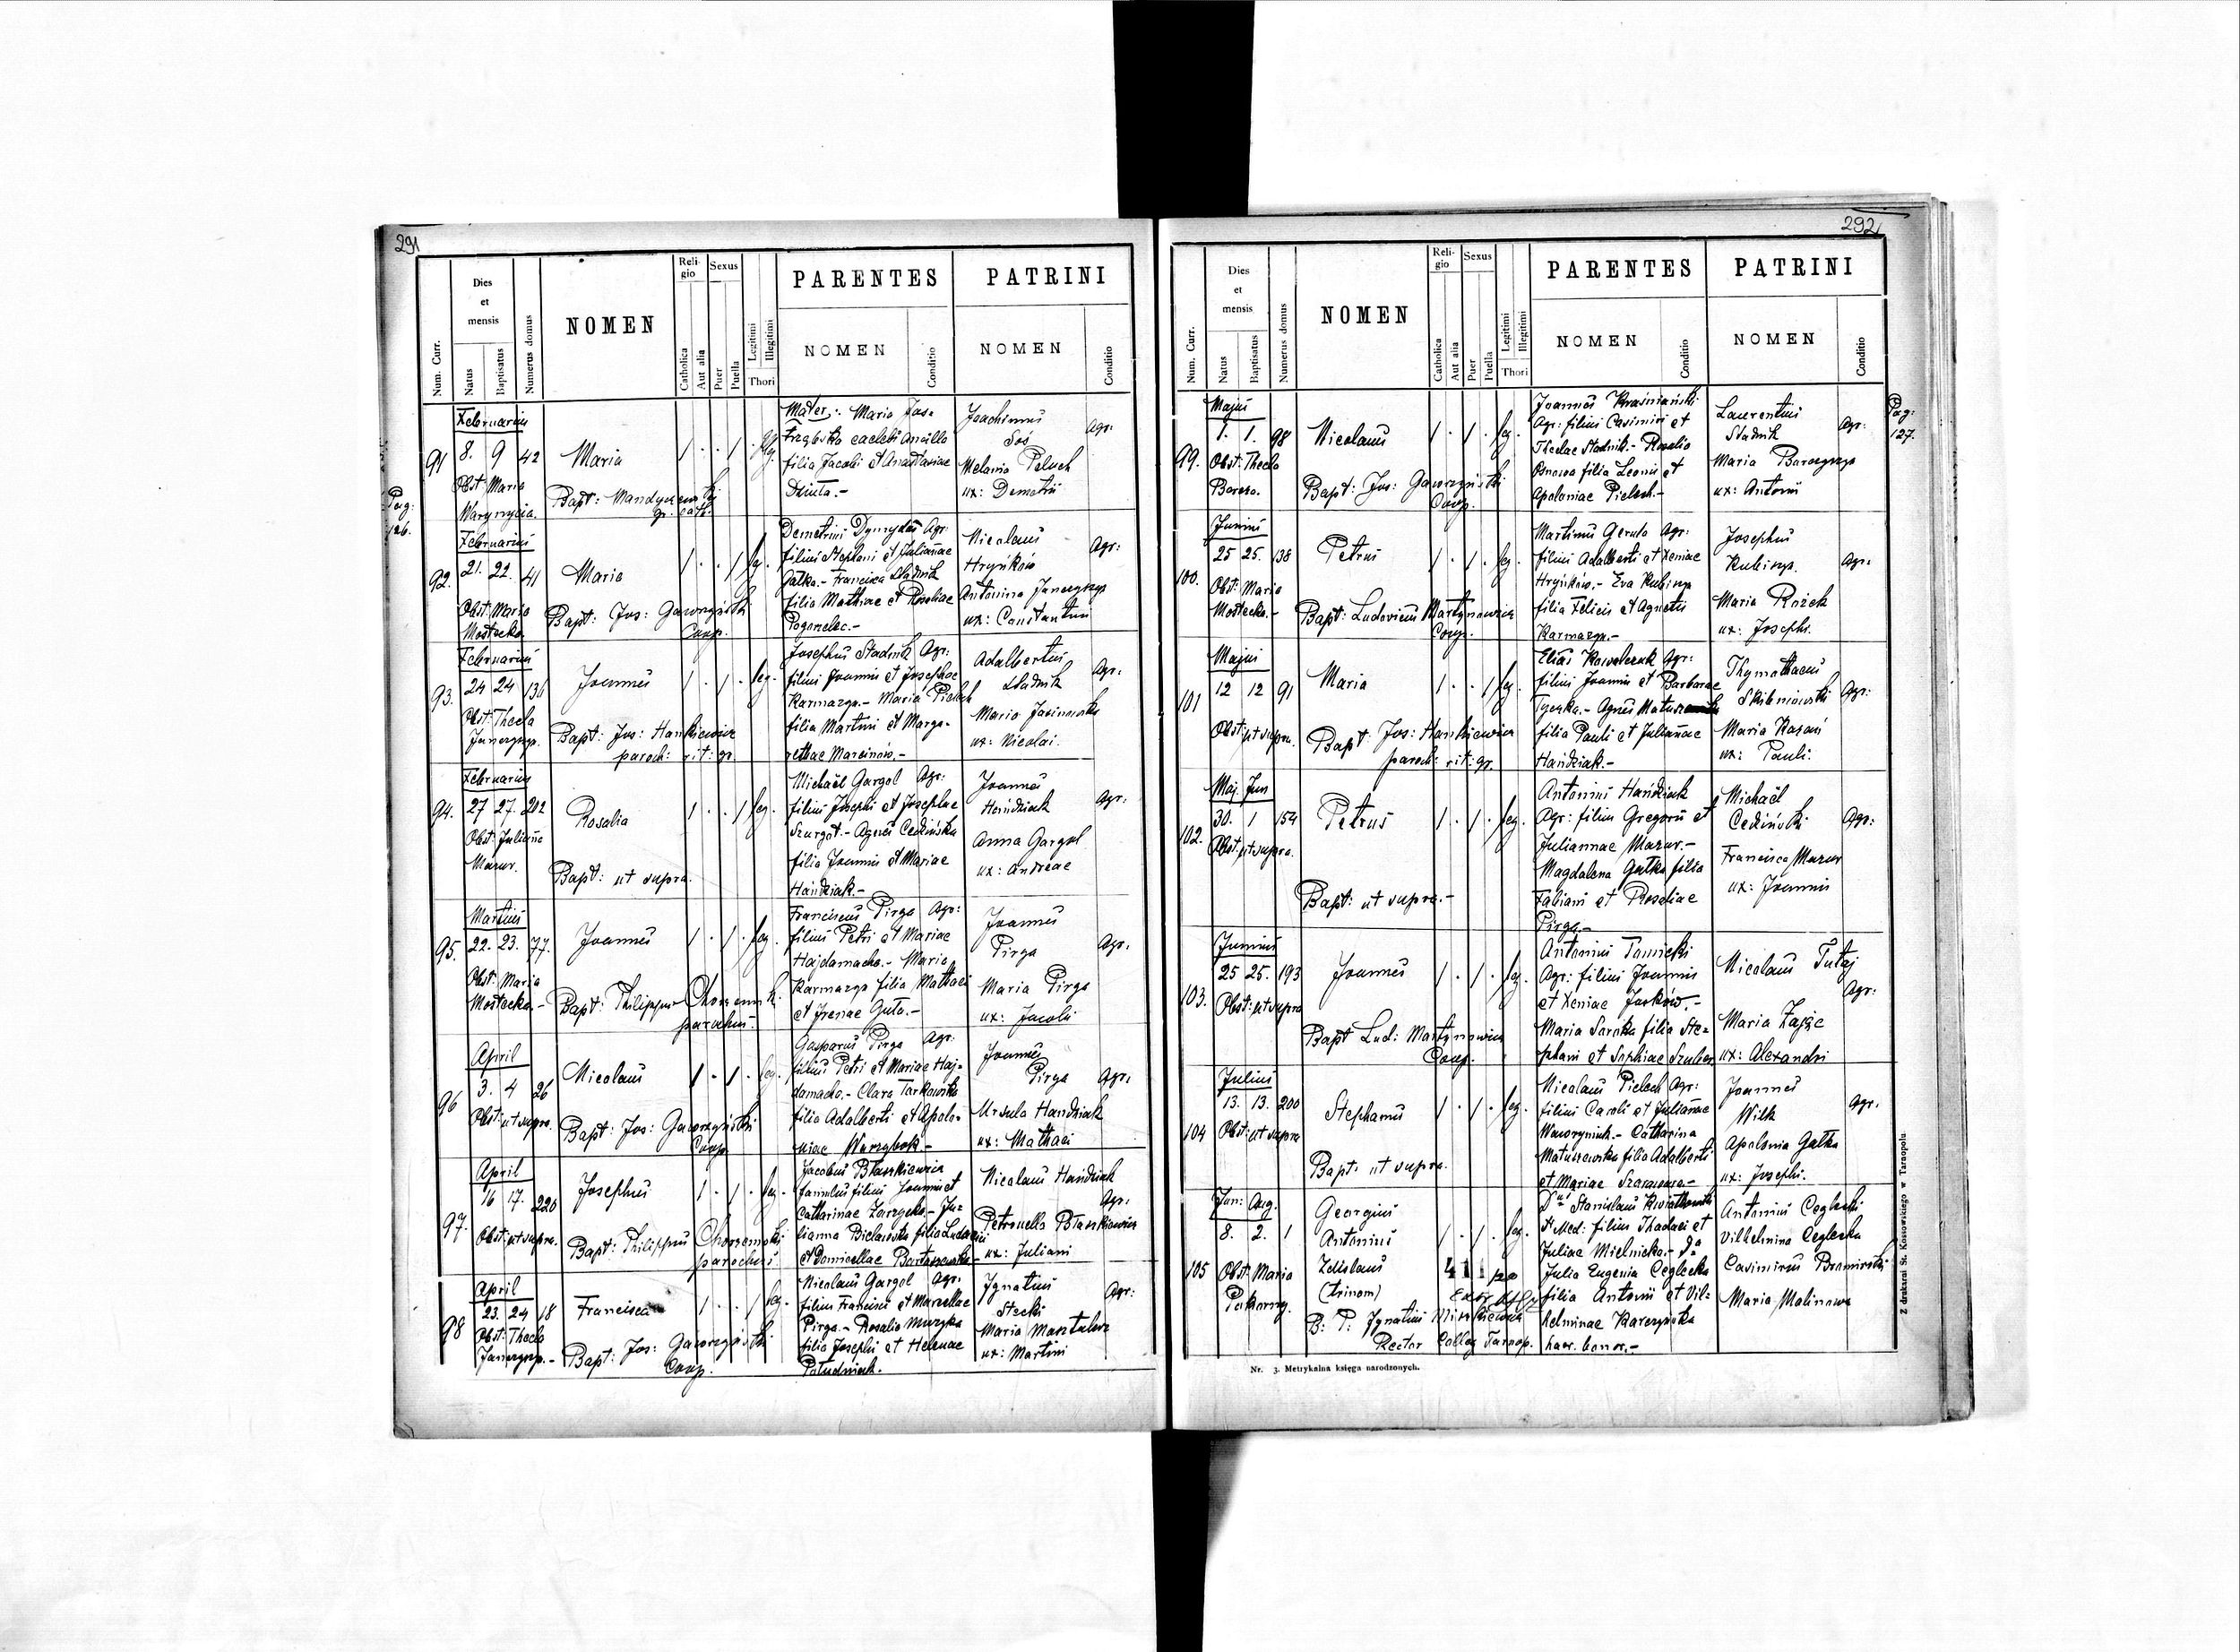 291
Num. Curr.
Dies et mensis
Natus
Baptisatus
Numerus domus
NOMEN
Religio
Catholica
Aut alia
Sexus
Puer
Puella
Legitimi
Illegitimi
Thori
PARENTES
NOMEN
Conditio
PATRINI
NOMEN
Conditio
Pag: 126.
91
Februarius
8. 9 42
Obst: Maria
Warynycia.
Maria
Bapt: Mandyczewski
gr. cath.
1 . . 1 . Illeg.
Mater: Maria Jas=
trzębska caelebs ancilla
filia Jacobi et Anastasiae
Dziuta.-
Joachimus
Soś
Melania Peluch
ux: Demetrii
Agr:
92.
Februarius
21. 22. 41
Obst: Maria
Mostecka.
Maria
Bapt: Jos: Gaworzyński
Coop.
1 . . 1 leg.
Demetrius Dymydas Agr:
filius Stephani et Juliannae
Gatka.- Francisca Stadnik
filia Mathiae et Rosaliae
Pogorzelec.-
Nicolaus
Hryńków
Antonina Janczyszyn
ux: Constantini
Agr:
93.
Februarius
24 24 136
Obst: Thecla
Janczyszyn.
Joannes
Bapt: Jos: Hankiewicz
paroch: rit: gr.
1 . 1 . leg.
Josephus Stadnik Agr:
filius Joannis et Josephae
Karmazyn.- Maria Pielech
filia Martini et Marga-
rethae Marcinów.-
Adalbertus
Stadnik
Maria Jasinowska
ux: Nicolai.
Agr:
94.
Februarius
27 27. 202
Obst: Julianna
Mazur.
Rosalia
Bapt: ut supra.
1 . . 1 leg.
Michaël Gargol Agr:
filius Josephi et Josephae
Szurgot.- Agnes Cedzińska
filia Joannis et Mariae
Handziak.-
Joannes
Handziak
Anna Gargol
ux: Andreae
Agr:
95.
Martius
22. 23. 77.
Obst: Maria
Mostecka.-
Joannes
Bapt: Philippus Chorzemski
parochus.
1 . 1 . leg.
Franciscus Pirga Agr:
filius Petri et Mariae
Hajdamacha.- Maria
Karmazyn filia Mathaei
et Irenae Guta.-
Joannes
Pirga
Maria Pirga
ux: Jacobi
Agr.
96
April
3. 4 26
Obst: ut supra.
Nicolaus
Bapt: Jos: Gaworzyński
Coop.
1 . 1 . leg.
Gasparus Pirga Agr:
filius Petri et Mariae Haj-
damacha.- Clara Tarkowska
filia Adalberti et Apolo-
niae Warzybok-
Joannes
Pirga
Ursula Handziak
ux: Mathaei
Agr.
97.
April
16 17. 220
Obst: ut supra.
Josephus
Bapt: Philippus Chorzemski
parochus
1 . 1 . leg.
Jacobus Błaszkiewicz
famulus filius Joannis et
Catharinae Zarzycka.- Ju-
lianna Bielawska filia Ludovici
et Domicellae Bartoszewska-
Nicolaus Handziak
Petronella Błaszkiewicz
ux: Juliani
Agr.
98
April
23. 24 18
Obst: Thecla
Janczyszyn.-
Francisca
Bapt: Jos: Gaworzyński
Coop.
1 . . 1 leg.
Nicolaus Gargol Agr.
filius Francisci et Marcellae
Pirga.- Rosalia Muzyka
filia Josephi et Helenae
Południak.
Ignatius
Stecki
Maria Masztalerz
ux: Martini
Agr:
292
Num. Curr.
Dies et mensis
Natus
Baptisatus
Numerus domus
NOMEN
Religio
Catholica
Aut alia
Sexus
Puer
Puella
Legitimi
Illegitimi
Thori
PARENTES
NOMEN
Conditio
PATRINI
NOMEN
Conditio
Pag: 127.
99.
Majus
1. 1. 98
Obst: Thecla
Nicolaus
Bapt: Jos: Gaworzyński
Coop.
1 . 1 . leg.
Joannes Kraśniański
Agr: filius Casimiri et
Theclae Stadnik.- Rosalia
filia Leonis et
Apoloniae Pielech.-
Laurentius
Stadnik
Maria
ux: Antonii
Agr:
100.
Junius
25 25. 138
Obst: Maria
Mostecka.-
Petrus
Bapt: Ludovicus Martynowicz
Coop.
1 . 1 . leg.
Martinus Gerula Agr:
filius Adalberti et Xeniae
Hryńków.- Eva Kubisyn
filia Felicis et Agnetis
Karmazyn.-
Josephus
Kubisyn.
Maria Rożek
ux: Josephi.
Agr.
101
Majus
12 12 91
Obst: ut supra.
Maria
Bapt: Jos: Hankiewicz
paroch: rit: gr.
1 . . 1 leg.
Elias Kowalczuk Agr:
filius Joannis et Barbarae
filia Pauli et Juliannae
Handziak.-
Thymothaeus
Skibniowski
Maria
ux: Pauli.
Agr:
102.
Maj. Jun
30. 1 154
Obst: ut supra.
Petrus
Bapt: ut supra.-
1 . 1 . leg.
Antonius Handziak
Agr: filius Gregorii et
Juliannae Mazur.-
Magdalena Gatka filia
Fabiani et Rosaliae
Pirga.-
Michaël
Cedziński
Francisca Mazur
ux: Joannis
Agr:
103.
Junius
25 25. 193
Obst: ut supra
Joannes
Bapt Lud: Martynowicz
Coop.
1 . 1 . leg.
Antonius Tomicki
Agr: filius Joannis
et Xeniae Jasków.-
Maria Saroka filia Ste=
phani et Sophiae
Nicolaus Tutaj
Maria Zając
ux: Alexandri
Agr:
104
Julius
13. 13. 200
Obst: ut supra
Stephanus
Bapt: ut supra.
1 . 1 . leg.
Nicolaus Pielech Agr:
filius Caroli et Juliannae
Waworyniuk.- Catharina
Matuszewska filia Adalberti
et Mariae
Joannes
Wilk
Apolonia Gatka
ux: Josephi.
Agr.
105
Jun: Aug.
8. 2. 1
Obst: Maria
Pokorny.
Georgius
Antonius
Zdislaus
(trinom)
B: P: Ignatius
Rector Colleg Tarnop.
1 . 1 . leg.
Dr. Stanislaus Kwiatkowski
Dr Med: filius Thadaei et
Juliae Mielnicka.- Da
Julia Eugenia Ceglecka
filia Antonii et Vil-
helminae Karczyńska
haer. bonor.-
Antonius Ceglecki
Vilhelmina Ceglecka
Casimirus
Maria Malinows
Nr. 3. Metrykalna księga narodzonych.
Z drukarni St. Kossowskiego w Tarnopolu